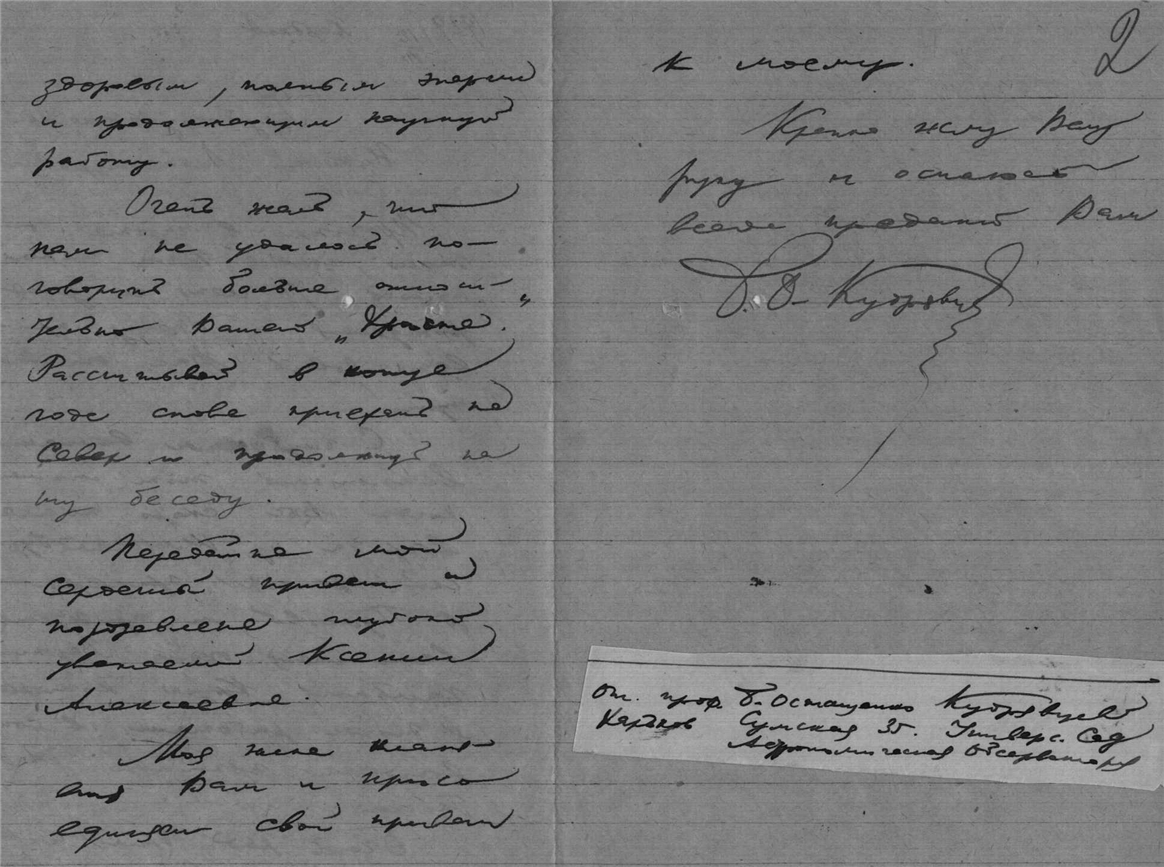 здоровым, полным энергии
и продолжающим научную
работу.
Очень жаль, что
нам не удалось по-
говорить больше относи-
тельно Вашего „Урана“.
Рассчитываю в конце
года снова приехать на
Север и продолжить на-
шу беседу.
Передайте мой
сердечный привет и
поздравление глубоко
уважаемой Ксении
Алексеевне.
Моя жена кланя-
ется Вам и присо
единяет свой привет
2
к моему.
Крепко жму Вашу
руку и остаюсь
всегда преданный Вам
Б. О. Кудрявцев
От. проф. Б. Остащенко Кудрявцев
Харьков Сумская 35. Универс. Сад
Астрономическая Обсерватория